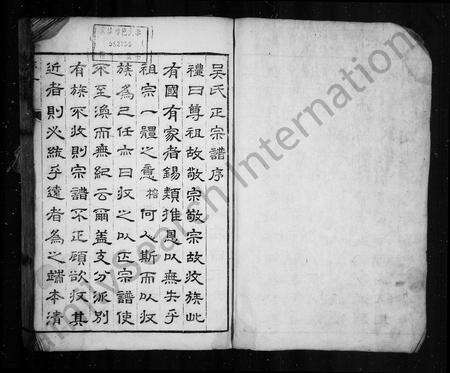 吳氏正宗譜序
禮曰尊祖故敬宗敬宗故收族此
有國有家者錫類推恩以無失乎
祖宗一體之意格何人斯而以收
族為己任亦曰收之以正宗譜使
不至渙而無紀云爾蓋支分派別
有族不收則宗譜不正碩欲收其
近者則必統乎遠者為之端本清
FamilySearch International